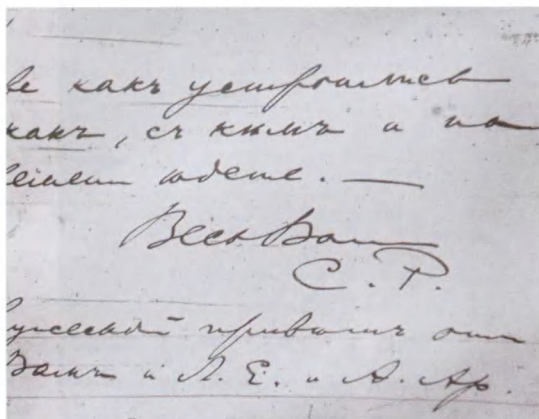 как устроились
как, съ кѣмъ и на
ѣдете. —
Весь Ваш
С. Р.
привѣтъ отъ
Вамъ и Л. Е. и А. Ар.